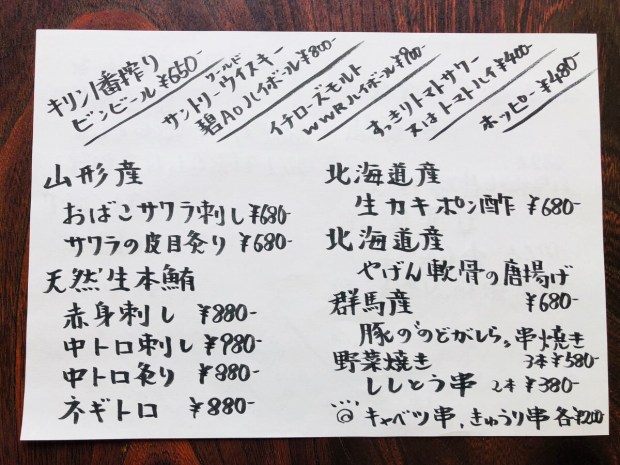 キリン一番搾り
ビンビール ¥650-
サントリーワールドウイスキー
碧Aoハイボール ¥800-
イチローズモルト
WWRハイボール ¥900-
すっきりトマトサワー
又はトマトハイ ¥400-
ホッピー ¥480-
山形産
おばこサワラ刺し ¥680-
サワラの皮目炙り ¥680-
天然生本鮪
赤身刺し ¥880-
中トロ刺し ¥980-
中トロ炙り ¥880-
ネギトロ ¥880-
北海道産
生カキポン酢 ¥680-
北海道産
やげん軟骨の唐揚げ
¥680-
群馬産
豚の"のどがしら"串焼き
3本¥580-
野菜焼き
ししとう串 2本 ¥380-
キャベツ串、きゅうり串 各¥200-